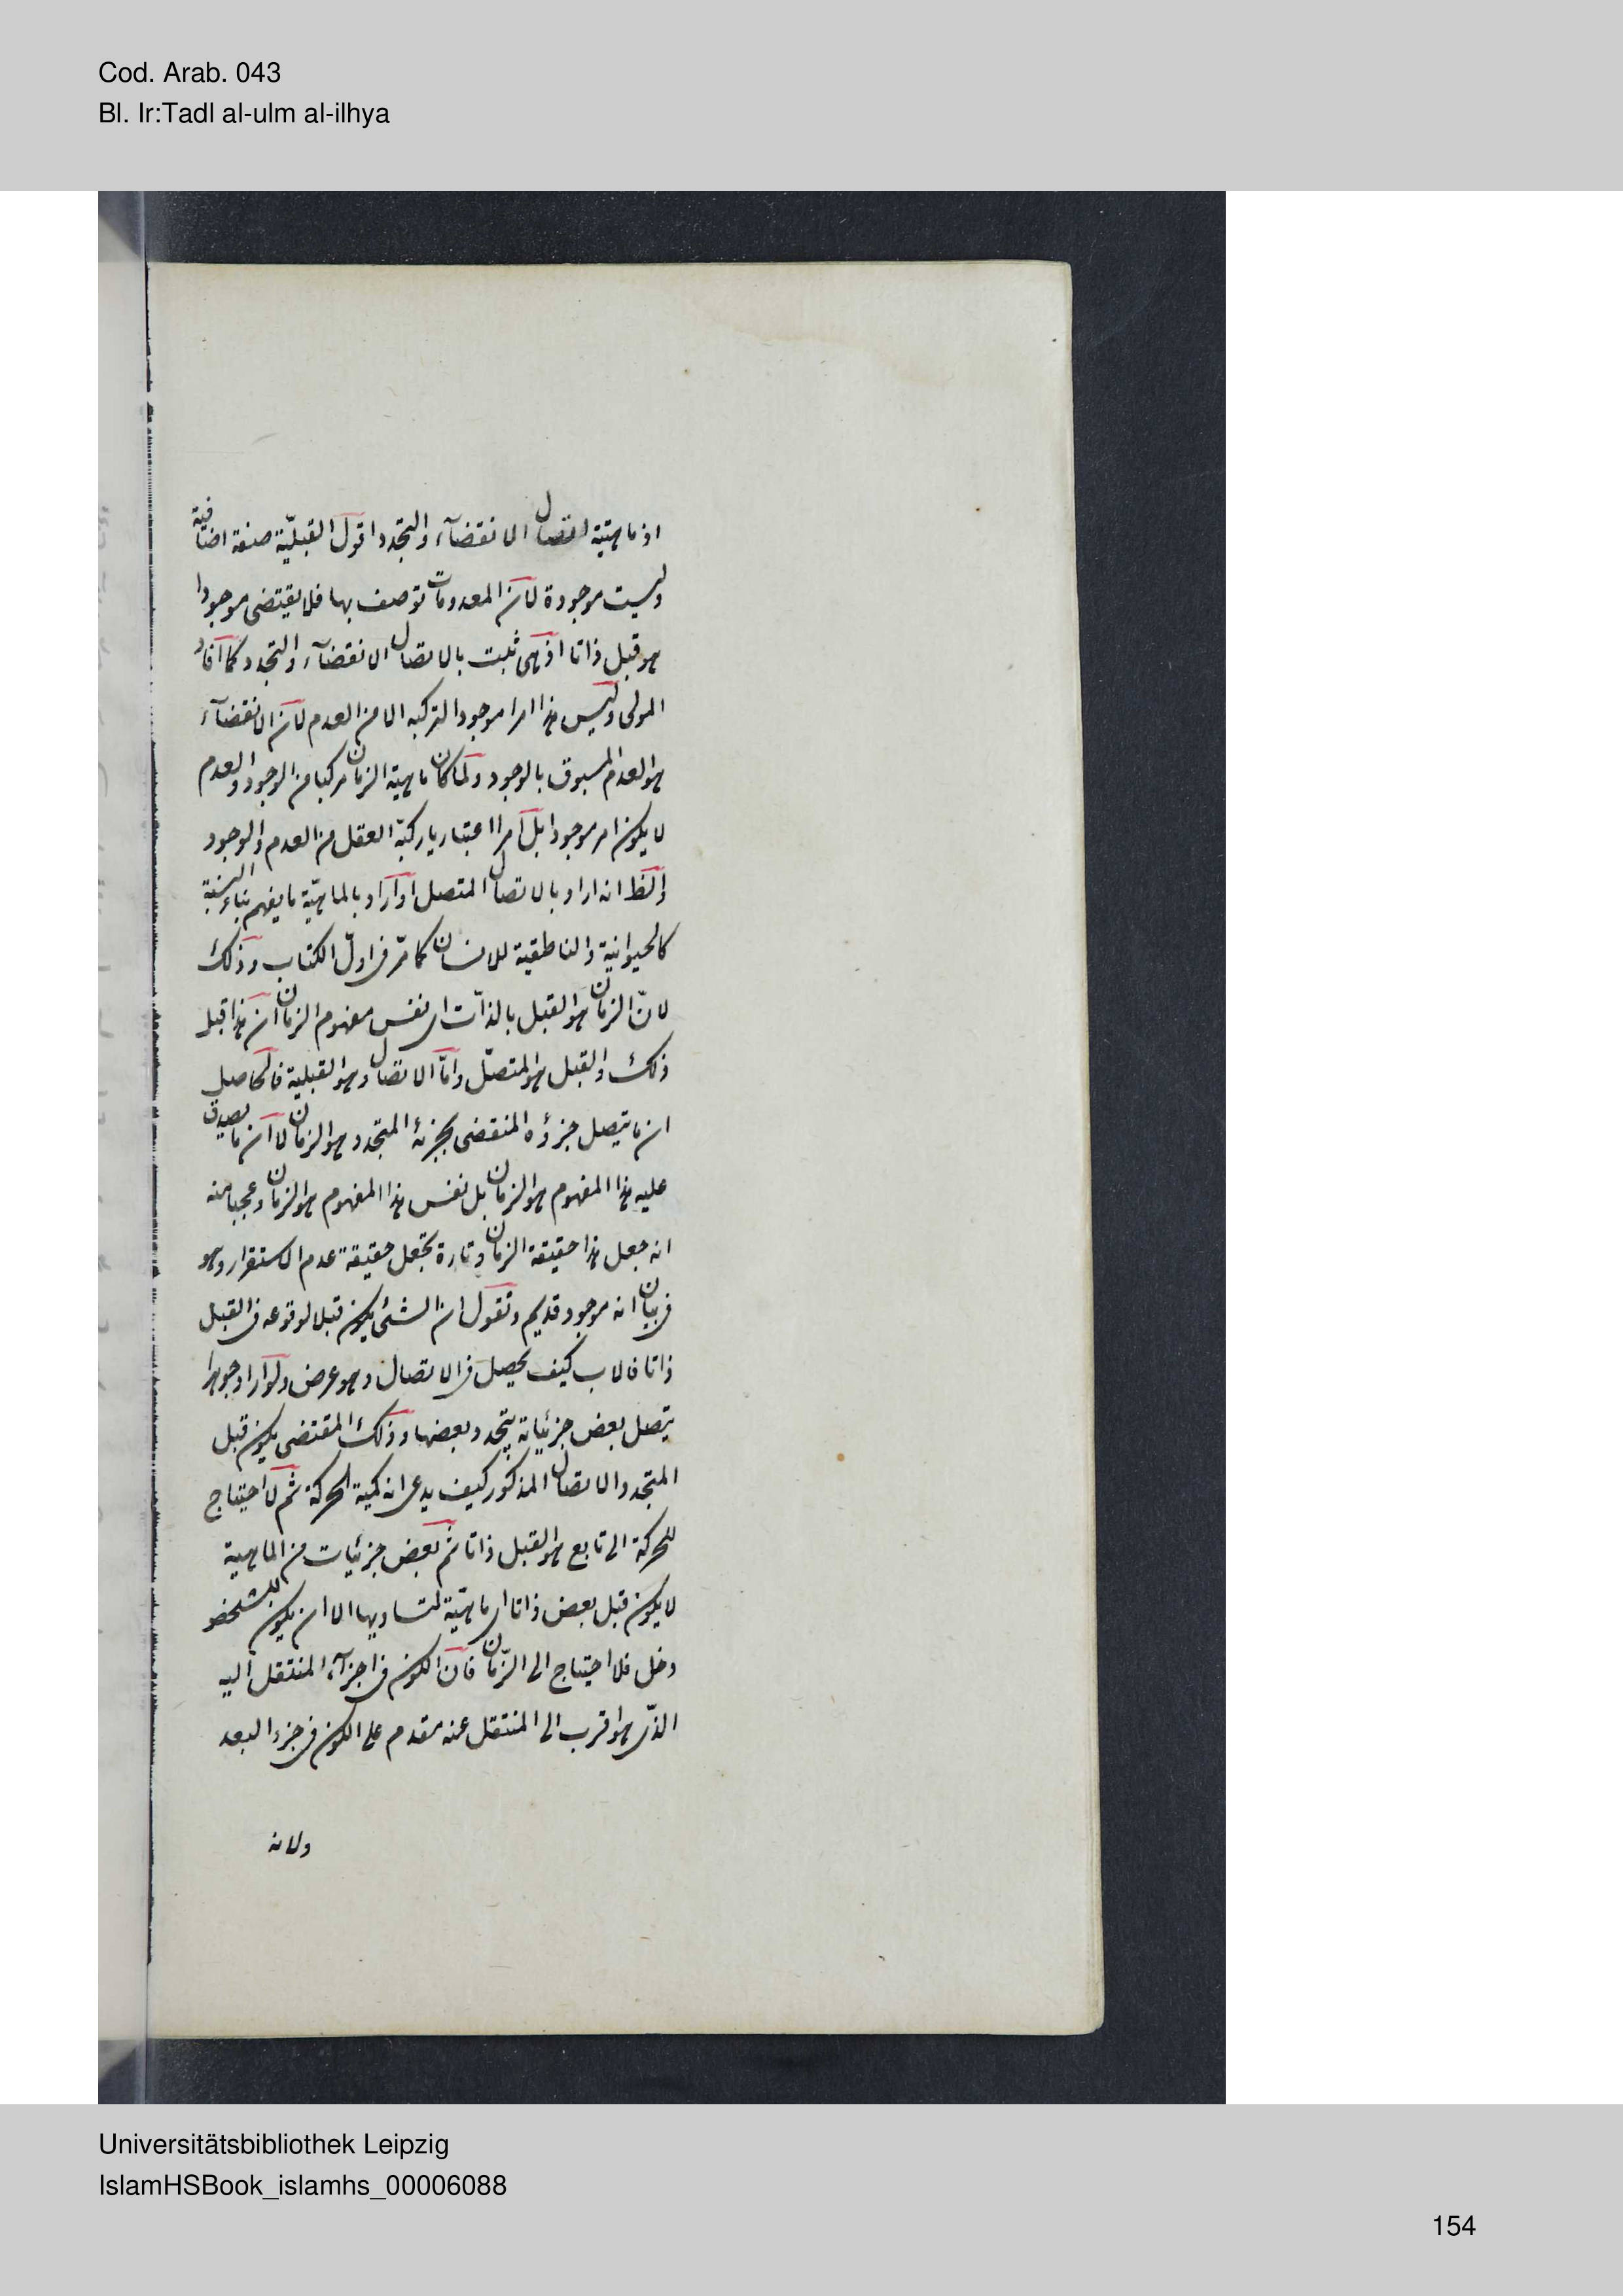 Cod. Arab. 043
Bl. Ir:Tadl al-ulm al-ilhya
اذ ماهيّة اتصال الانقضآء والتجدد اقول القبليّة صفة اضافية
وليست موجودة لان المعدومات توصف بها فلا يقتضى موجودا
هو قبل ذاتا اذ هى ثبت بالاتصال الانقضآء والتجدد كما افاد
المولى وليس هذا امرا موجودا لتركبه الا من العدم لان الانقضآء
هو العدم المسبوق بالوجود ولما كان ماهية الزمان مركبا من الوجود والعدم
لا يكون امر موجودا بل امرا اعتباريا ركبّه العقل من العدم والوجود
والظ انه اراد بالاتصال المتصل او اراد بالماهيّة ما يفهم بتاء النسبة
كالحيوانية والناطقية للانسان كما مرّ فى اول الكتاب وذلك
لانّ الزمان هو القبل بالذات اى نفس مفهوم الزمان ان هذا قبل
ذلك والقبل هو المتصل وامّا الاتصال وهو القبلية فالحاصل
ان ما يتصل جزؤه المنقضى بجزئه المتجدد هو الزمان لا ان ما يصدق
عليه هذا المفهوم هو الزمان بل نفس هذا المفهوم هو الزمان وعجبا منه
انه جعل هذا حقيقة الزمان وتارة يجعل حقيقة عدم الاستقرار وهو
فى بيان انه موجود قديم ونقول ان الشئ يكون قبلا لوقوعه فى القبل
ذاتا فالاب كيف يحصل فى الاتصال وهو عرض ولو اراد جوهرا
يتصل بعض جزئياته يتجدد بعضها وذلك المقتضى يكون قبل
المتجدد والاتصال المذكور كيف يدعى انه كمية الحركة ثم لا احتياج
للحركة الى تابع هو القبل ذاتا ثم بعض جزئيات من الماهية
لا يكون قبل بعض ذاتا اى ماهيّة لتساويها الا ان يكون للتشخص
دخل فلا احتياج الى الزّمان فان الكون فى اجزآء المنتقل اليه
الذى هو اقرب الى المنتقل عنه مقدم على الكون فى جزء البعد
ولانه
Universitätsbibliothek Leipzig
IslamHSBook_islamhs_00006088
154